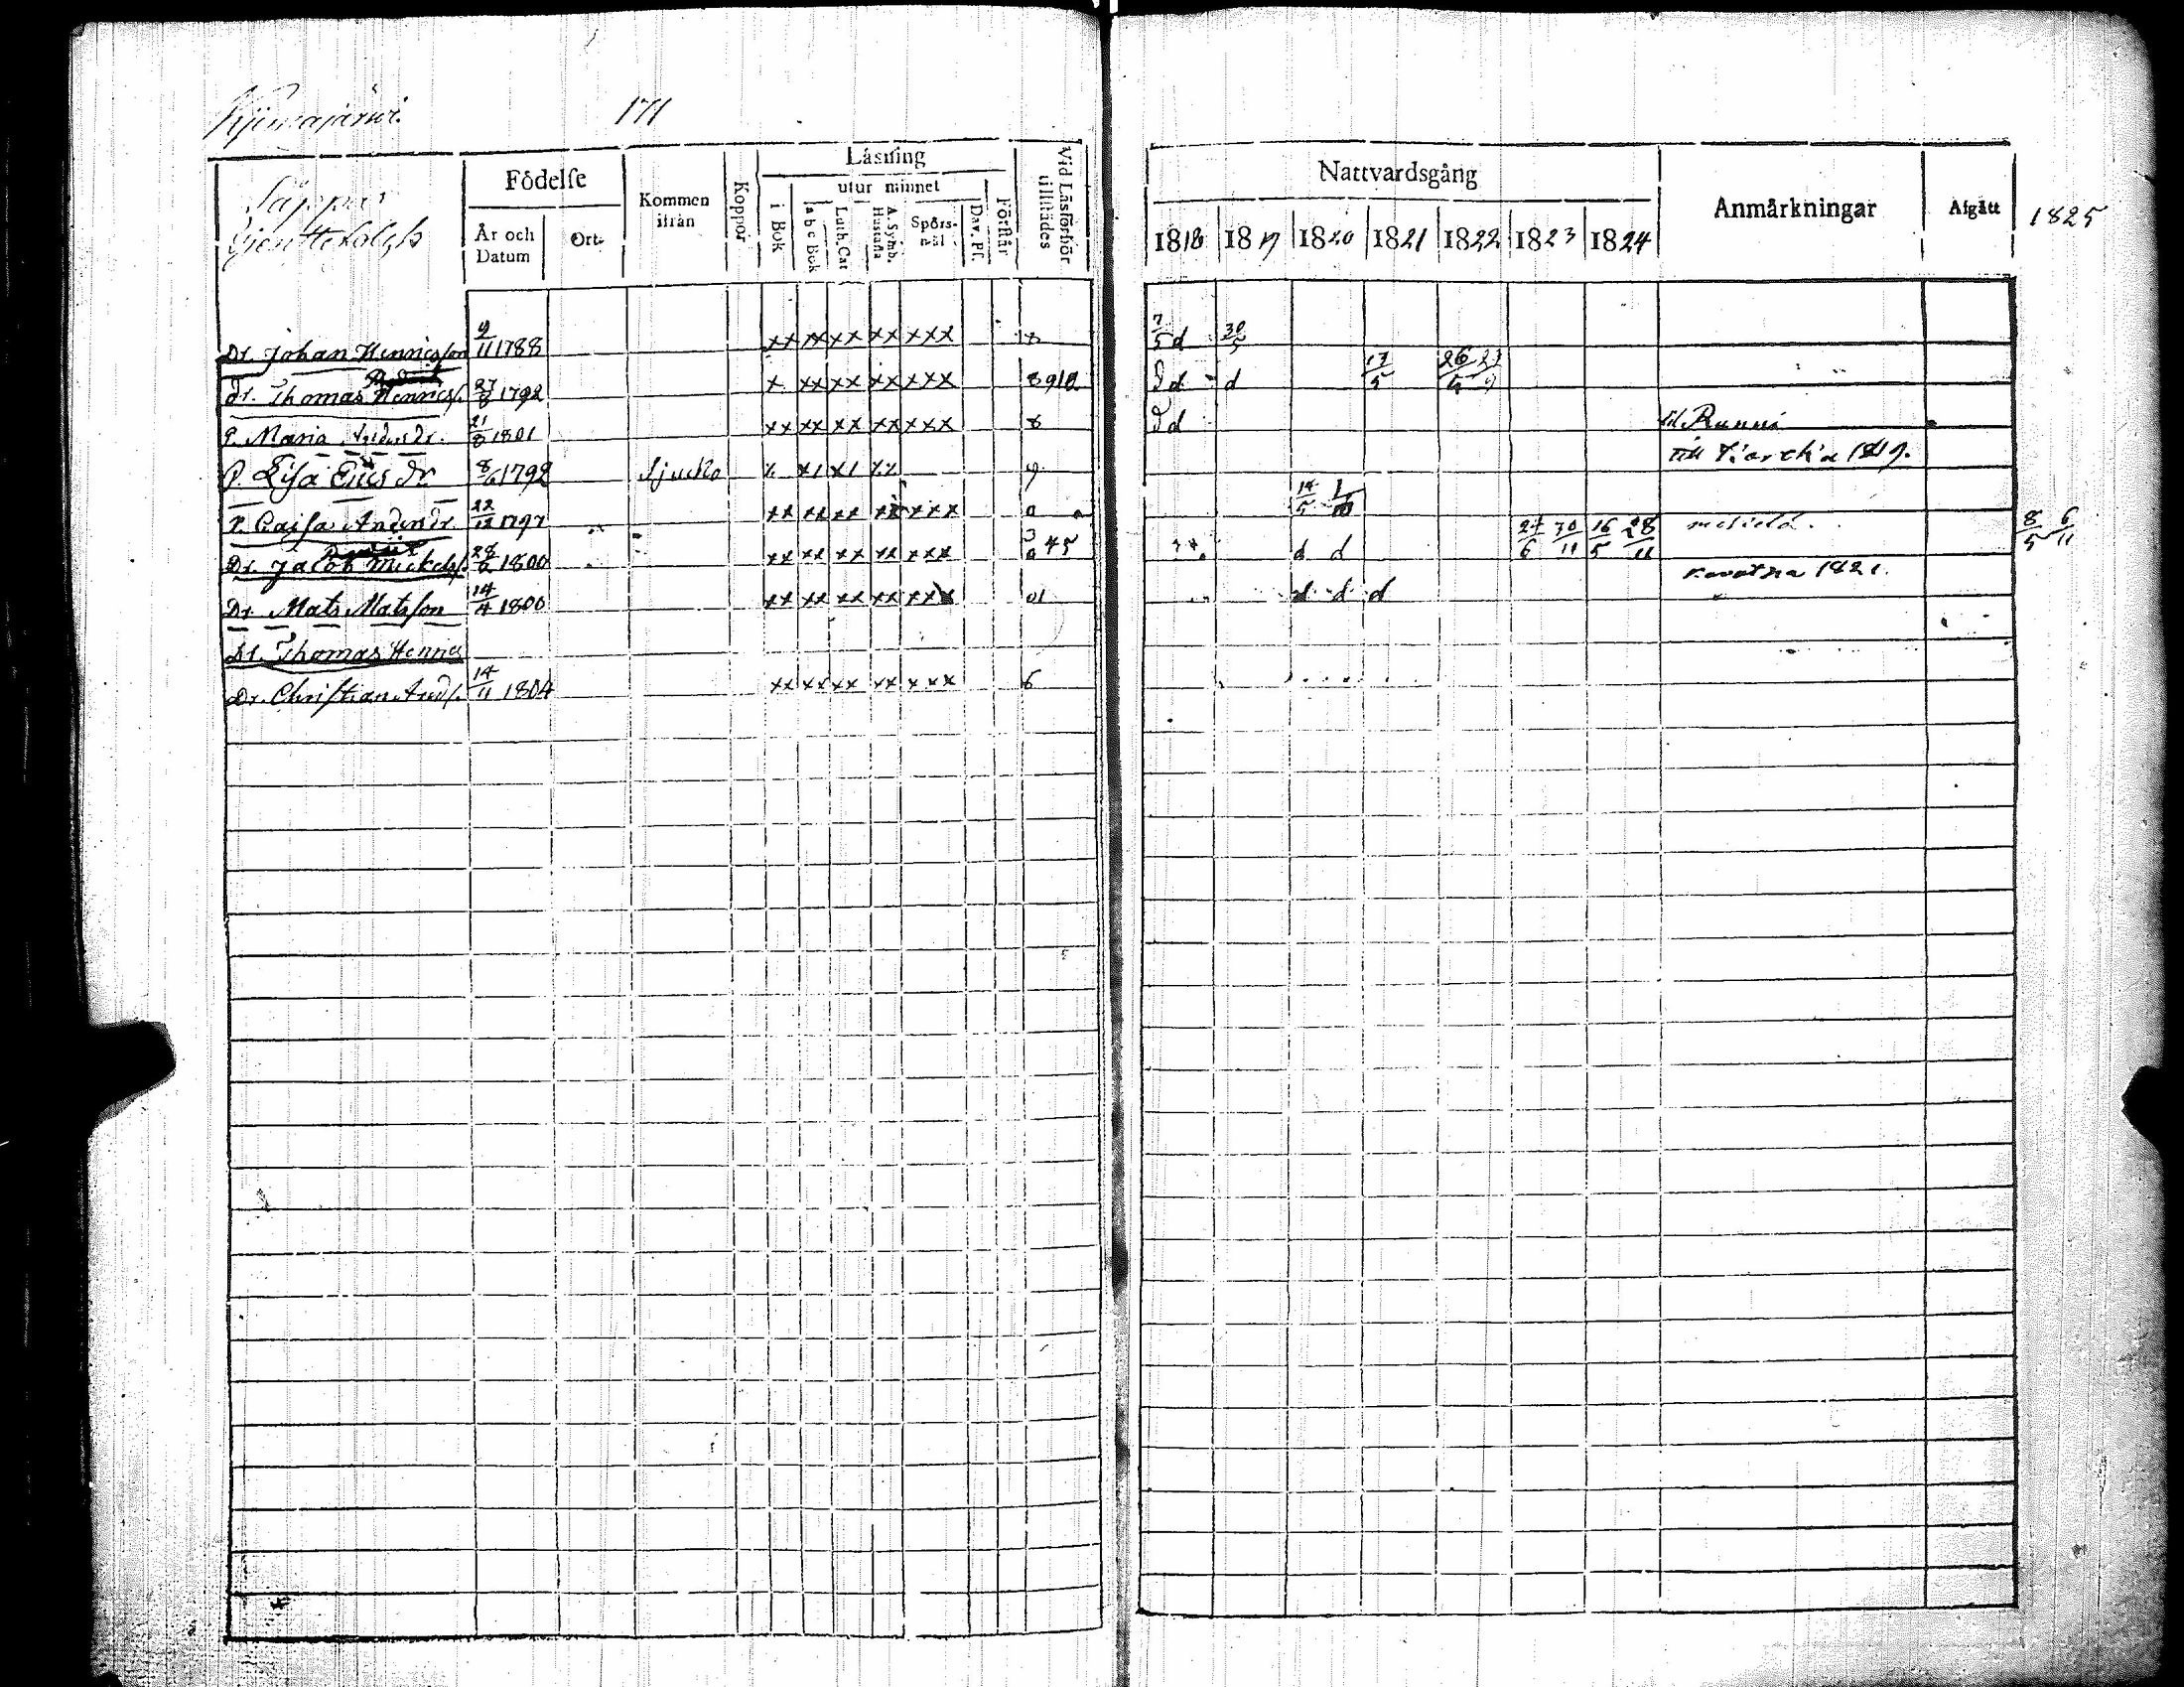 Kjemajärvi. 1711
Säppäs
Tjensttefolcks
Födelse
År och Datum
Ort.
Kommen ifrån
Koppor
Läsning
utur minnet
i Bok
a b c Bok
Luth. Cat
A. Symb. Hustafla
Spörs-mål
Dav. Ps.
Förstår
Vid Läsförhör tillstädes
Nattvardsgång
1818 1819 1820 1821 1822 1823 1824
Anmärkningar
Afgått
1825
Dr. Johan Henricsson 9/11 1788 xx xx xx xx xxx 8 7/5 d 30/5
dr. Thomas Henricss. 27/8 1792 x xx xx xx xxx 8 9 10 d d 17/5 26/5 23/9
P. Maria Anders dr. 21/8 1801 xx xx xx xx xxx 8 d till Runni
P. Lisa Erics dr 8/6 1792 Sjucko 9 till 1819.
P. Caisa Anders dr. 22/12 1797 xx xx xx xx xxx 0 14/5 1/10
Dr. Jacob Mickelss. 28/6 1800 xx xx xx xx xxx 0 3 4 5 d d 24/6 30/11 16/5 28/11 8/5 6/11
Dr. Mats Matsson 14/4 1800 xx xx xx xx xxx 01 d d d 1821.
Dr. Thomas Henrics
Dr. Christian Andss. 14/11 1804 xx xx xx xx xxx 6